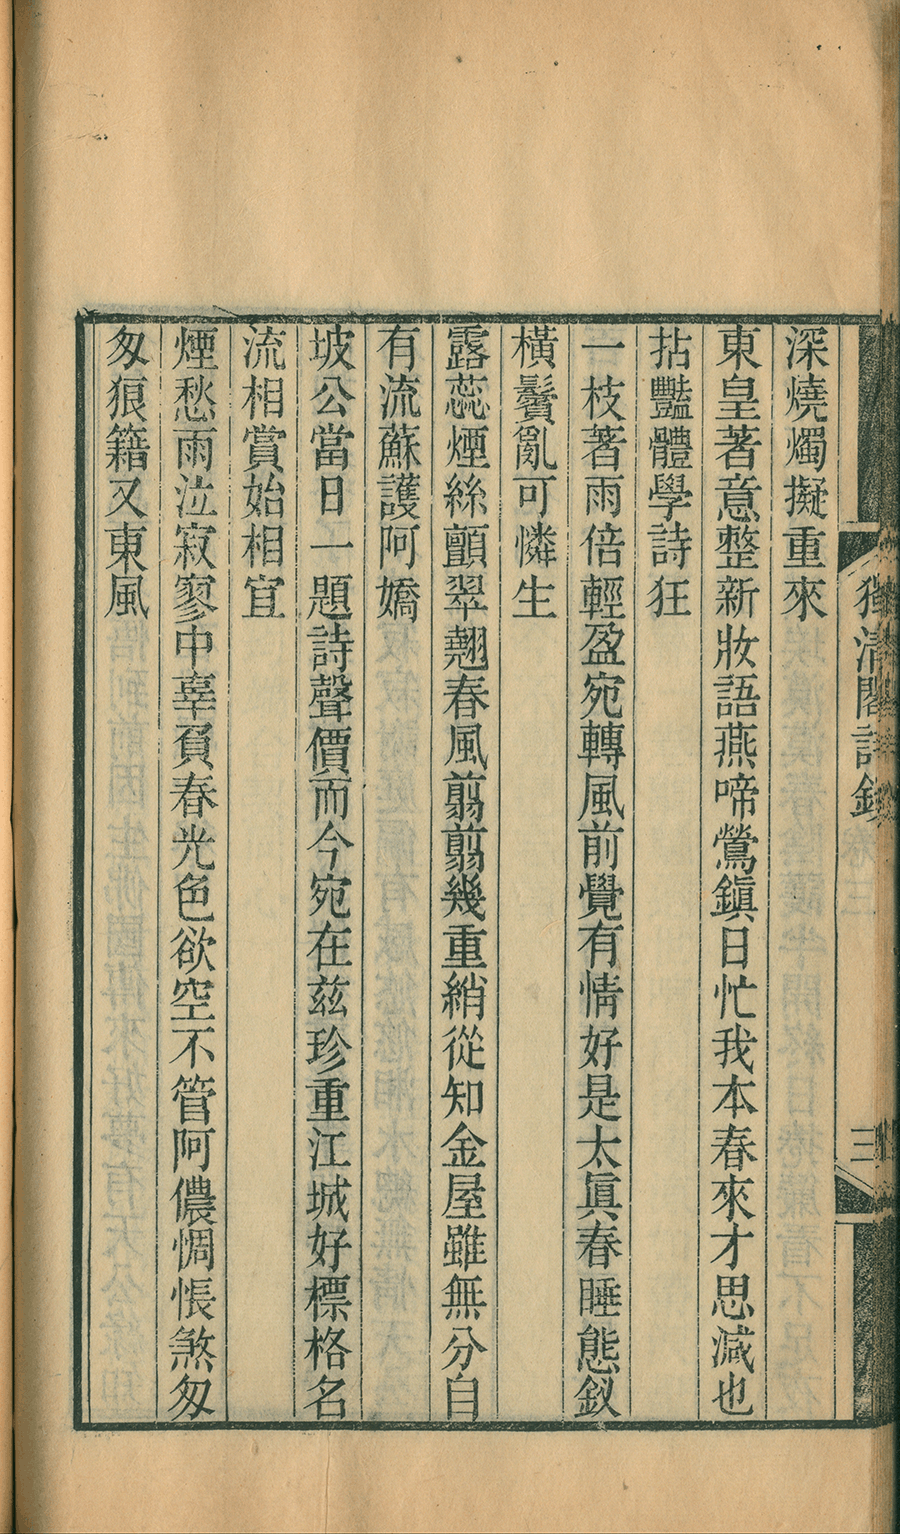 獨清閣詩鈔
三
深燒燭擬重來
東皇著意整新妝語燕啼鶯鎮日忙我本春來才思減也
拈豔體學詩狂
一枝著雨倍輕盈宛轉風前覺有情好是太眞春睡態釵
橫鬢亂可憐生
露蕊煙絲顫翠翹春風翦翦幾重綃從知金屋雖無分自
有流蘇護阿嬌
坡公當日一題詩聲價而今宛在茲珍重江城好標格名
流相賞始相宜
煙愁雨泣寂寥中辜負春光色欲空不管阿儂惆悵煞匆
匆狼籍又東風